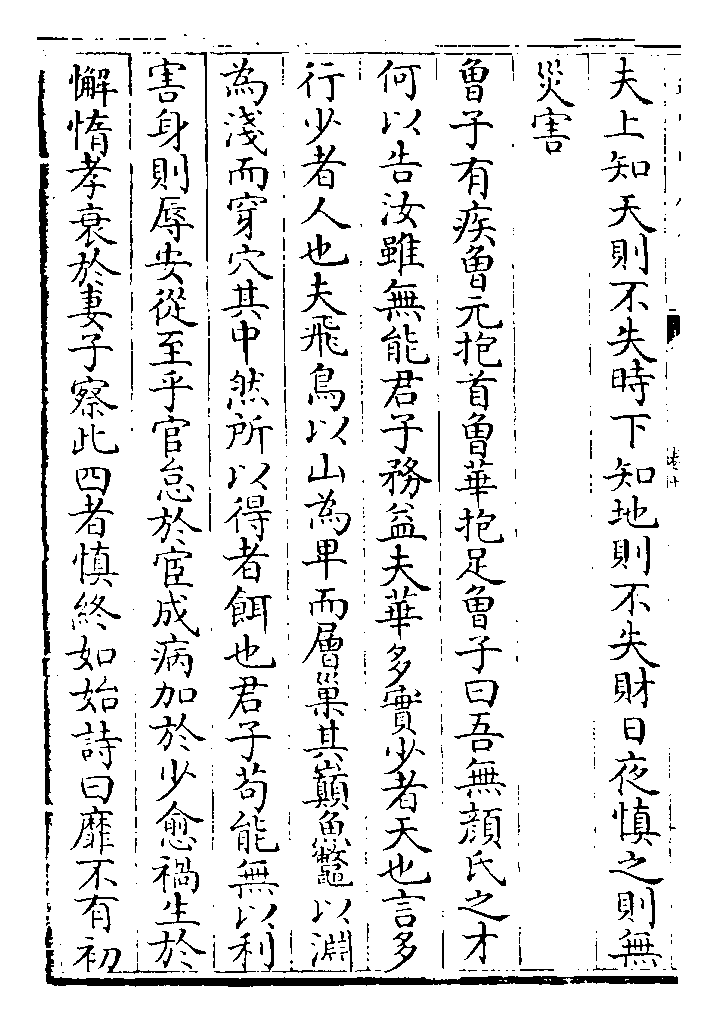 夫上知天則不失時下知地則不失財日夜慎之則無
災害
曾子有疾曾元抱首曾華抱足曾子曰吾無顔氏之才
何以告汝雖無能君子務益夫華多實少者天也言多
行少者人也夫飛鳥以山為卑而層巢其巔魚鼈以淵
為淺而穿穴其中然所以得者餌也君子苟能無以利
害身則辱安從至乎官怠於宦成病加於少愈禍生於
懈惰孝衰於妻子察此四者慎終如始詩曰靡不有初